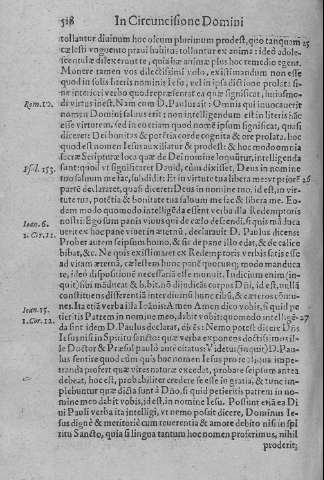 518 In Circuncisione Domini
tollantur diuinum hoc oleum plurimum prodest, quo tanquam 25
cælesti vnguento praui habitus tolluntur ex anima: ideò
esse, quia hæ animæ plus hoc remedio egent.
Monere tamen vos dilectissimi volo, existimandum non esse
quod in solis literis nominis Iesu, vel in ipsa dictione prolata: si-
ne interiori verbo quod repræsentat ea quæ significat, huiusmo-
Rom. 10. di virtus inest. Nam cum D. Paulus ait: Omnis qui inuocauerit
nomen Domini saluus erit: non intelligendum est in literis hãc
esse virtutem, sed in eo etiam quod nomẽ ipsum significat, quasi
diceret: Dei bonitas & potẽtia corde cognita & ore prolata: hoc
quod est nomen Iesus auxiliatur & prodest: & hoc modo omnia
sacræ Scripturæ loca quæ de Dei nomine loquũtur, intelligenda
Psal. 153. sunt: quod vt significaret Dauid, cùm dixisset, Deus in nomine
tuo saluum me fac, subdidit: Et in virtute tua libera me vt priorẽ 26
partẽ declararet, quasi diceret: Deus in nomine tuo, id est, in vir-
tute tua, potẽtia & bonitate tua saluum me fac & libera me. Eo-
dem modo quomodo intelligẽda essent verba illa Redemptoris
nostri: Ego sum panis viuus qui de cælo descendi, si quis mãduca
Ioan. 6. uerit ex hoc pane viuet in æternũ, declarauit D. Paulus dicens:
1. Cor. 11. Probet autem seipsum homo, & sic de pane illo edat, & de calice
bibat, &c. Ne quis existimaret ex Redemptoris verbis satis esse
ad vitam æternã, cælestem hunc panẽ quocunq; modo manduca
re, ideò dispositionẽ necessariã esse monuit. Iudicium enim (in-
quit) sibi mãducat & bibit nõ dijudicãs corpus Dñi, id est, nullã
constituens differentiã inter diuinum hunc cibũ, & cæteros cõmu-
Ioan. 15. nes. Ita etiã verba illa Ioãnis: Amen Amen dico vobis, si quid pe-
tieritis Patrem in nomine meo, dabit vobis: quomodo intelligẽ- 27
1. Cor. 12. da sint idem D. Paulus declarat, dicẽs: Nemo potest dicere Dñs
Iesus nisi in Spiritu sancto: quæ verba exponens doctissimus il-
le Doctor & Præsul paulò ante citatus: Videtur (inquit) D. Pau-
lus sentire quod cùm quis hoc nomen Iesus profert, impe-
tranda profert quæ vires naturæ excedat, probare seipsum antea
debeat, hoc est, probabiliter credere se esse in gratia, & tunc im-
plebuntur quæ dicta sunt à Dño, si quid petieritis patrem in no-
mine meo dabit vobis, id est, in nomine Iesu. Possunt etiã ea Di
ui Pauli verba ita intelligi, vt nemo possit dicere, Dominus Ie-
sus dignè & meritoriè cum reuerentia & amore debito nisi in spi
ritu Sancto, quia si lingua tantum hoc nomen proferimus, nihil
proderit;